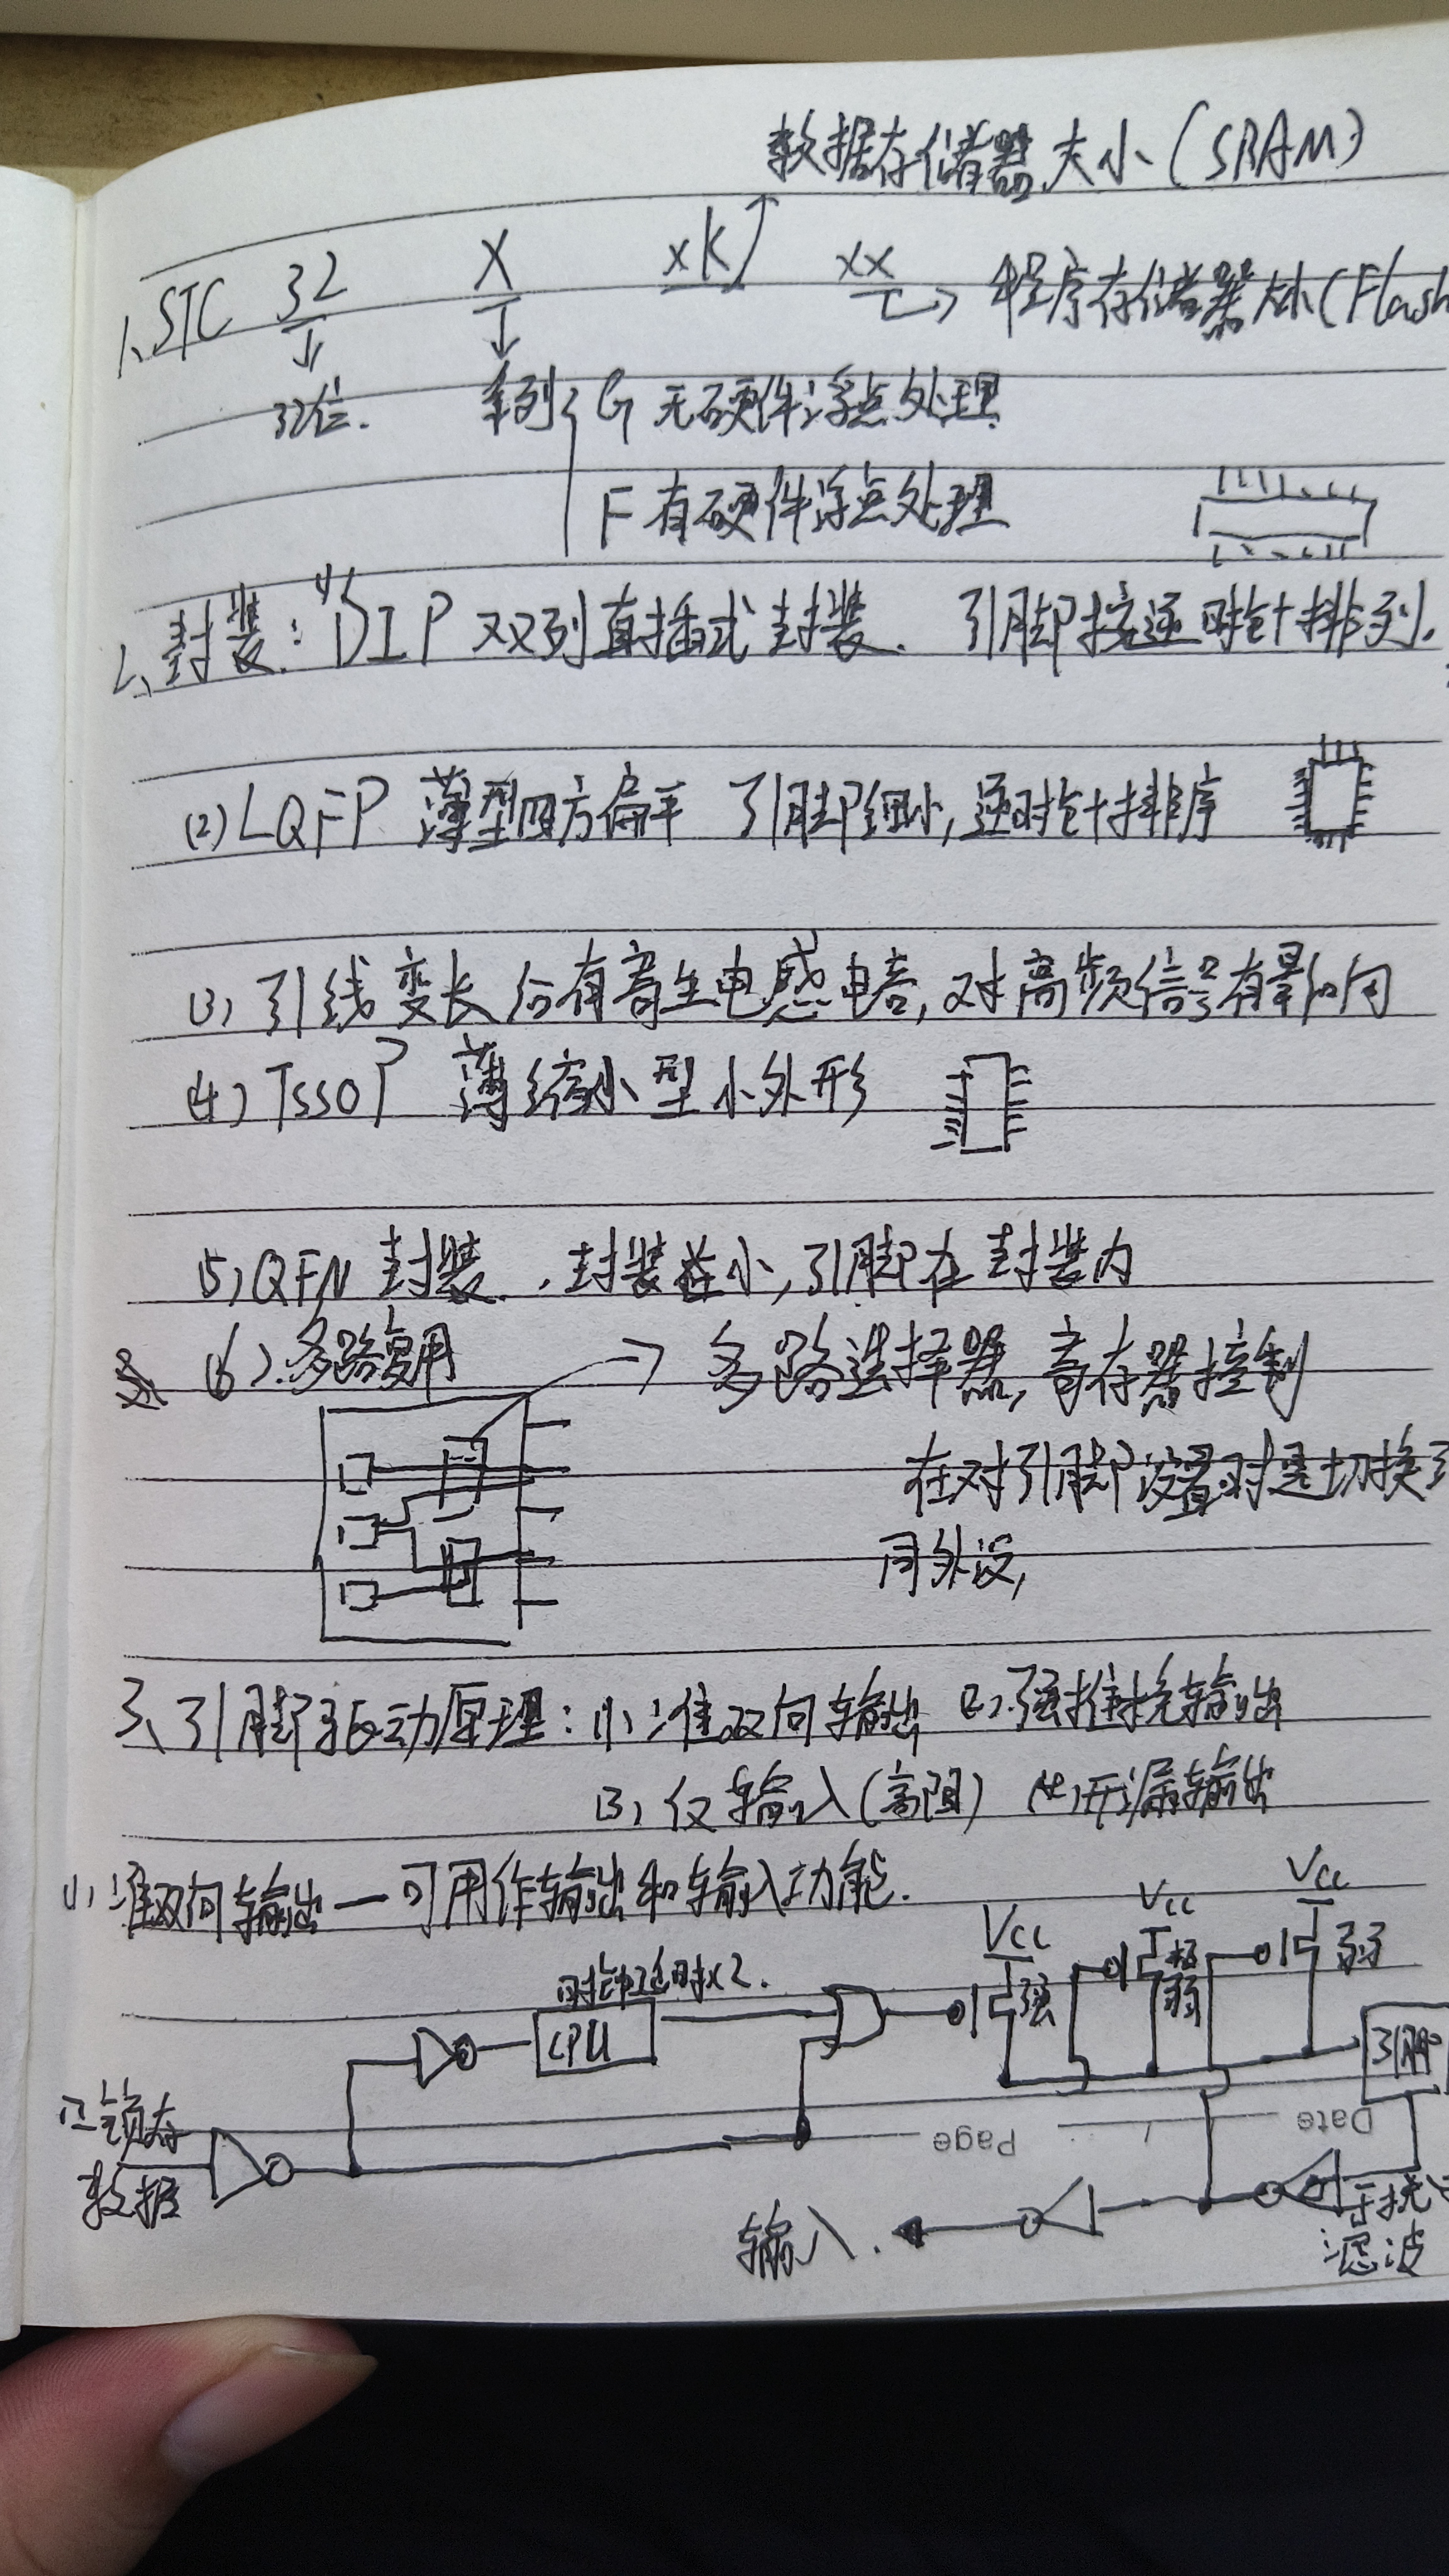 数据存储器大小(SRAM)
1、STC 32 X xK xx → 程序存储器大小(Flash
32位. 系列 G 无硬件浮点处理
F 有硬件浮点处理
2、封装: (1) DIP 双列直插式封装. 引脚按逆时针排列.
(2) LQFP 薄型四方扁平 引脚细小,逆时针排序
(3) 引线变长后有寄生电感电容,对高频信号有影响
(4) TSSOP 薄缩小型小外形
(5) QFN 封装. 封装小,引脚在封装内
(6) 多路复用 → 多路选择器,寄存器控制
在对引脚设置时是切换
同外设,
3、引脚驱动原理: (1) 准双向输出 (2) 强推挽输出
(3) 仅输入(高阻) (4) 开漏输出
(1) 准双向输出 — 可用作输出和输入功能.
Vcc Vcc Vcc
时钟延时x2. 强 极弱 弱
CPU
引脚
口锁存
数据
Page Date
输入. 干扰
滤波